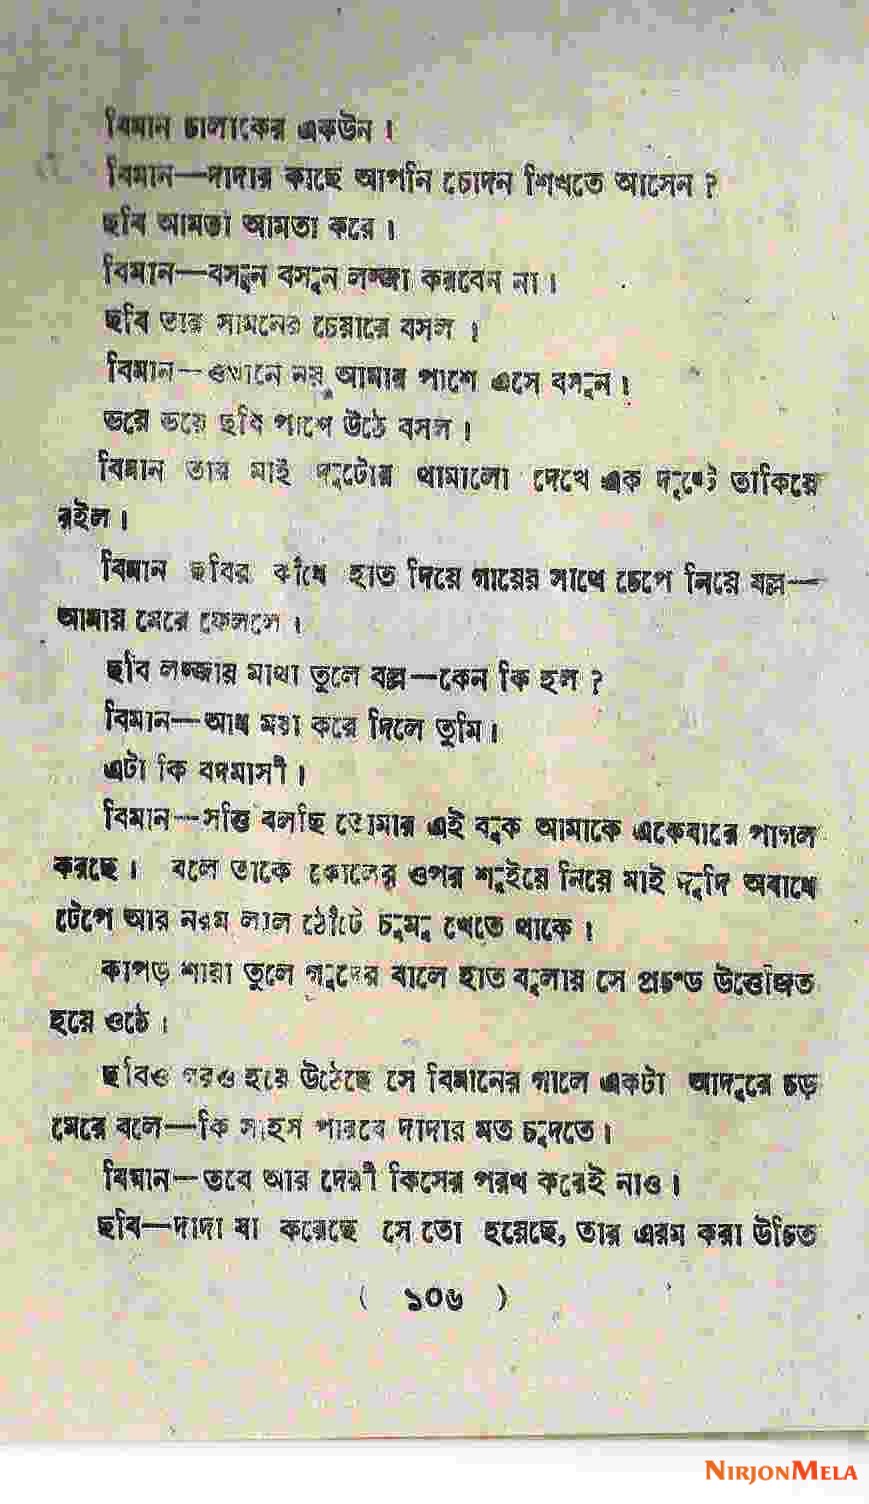 বিমান চালাকের একউন ।
বিমান—দাদার কাছে আপনি চোদন শিখতে আসেন ?
ছবি আমতা আমতা করে ।
বিমান—বসুন বসুন লজ্জা করবেন না ।
ছবি তার সামনের চেয়ারে বসল ।
বিমান—ওখানে নয় আমার পাশে এসে বসুন ।
ভয়ে ভয়ে ছবি পাশে উঠে বসল ।
বিমান তার মাই দুটোর থামালো দেখে এক দৃষ্টে তাকিয়ে
রইল ।
বিমান ছবির কাঁধে হাত দিয়ে গায়ের সাথে চেপে নিয়ে বল্ল—
আমায় মেরে ফেললে ।
ছবি লজ্জায় মাথা তুলে বল্ল—কেন কি হল ?
বিমান—আধ মরা করে দিলে তুমি ।
এটা কি বদমাসী ।
বিমান—সত্তি বলছি তোমার এই বুক আমাকে একেবারে পাগল
করছে । বলে তাকে কোলের ওপর শুইয়ে নিয়ে মাই দুদি অবাধে
টেপে আর নরম লাল ঠোঁটে চুমু খেতে থাকে ।
কাপড় শায়া তুলে গুদের বালে হাত বুলায় সে প্রচণ্ড উত্তেজিত
হয়ে ওঠে ।
ছবিও গরও হয়ে উঠেছে সে বিমানের গালে একটা আদুরে চড়
মেরে বলে—কি সাহস পারবে দাদার মত চুদতে ।
বিমান—তবে আর দেরী কিসের পরখ করেই নাও ।
ছবি—দাদা যা করেছে সে তো হয়েছে, তার এরম করা উচিত
( ১০৬ )
NIRJONMELA